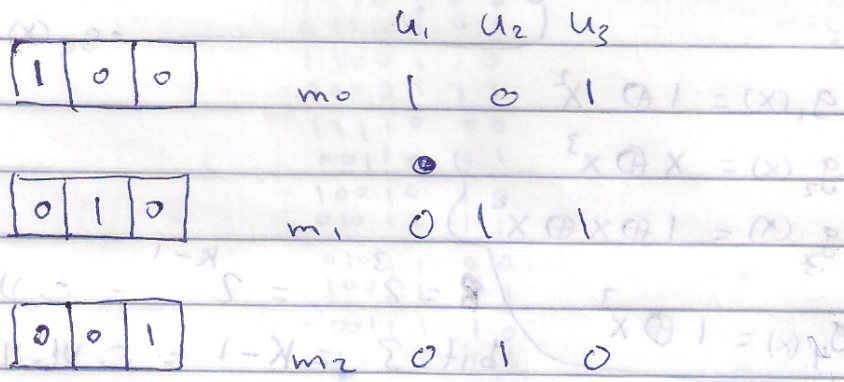 u₁ u₂ u₃
1 0 0 m₀ 1 0 1
0 1 0 m₁ 0 1 1
0 0 1 m₂ 0 1 0